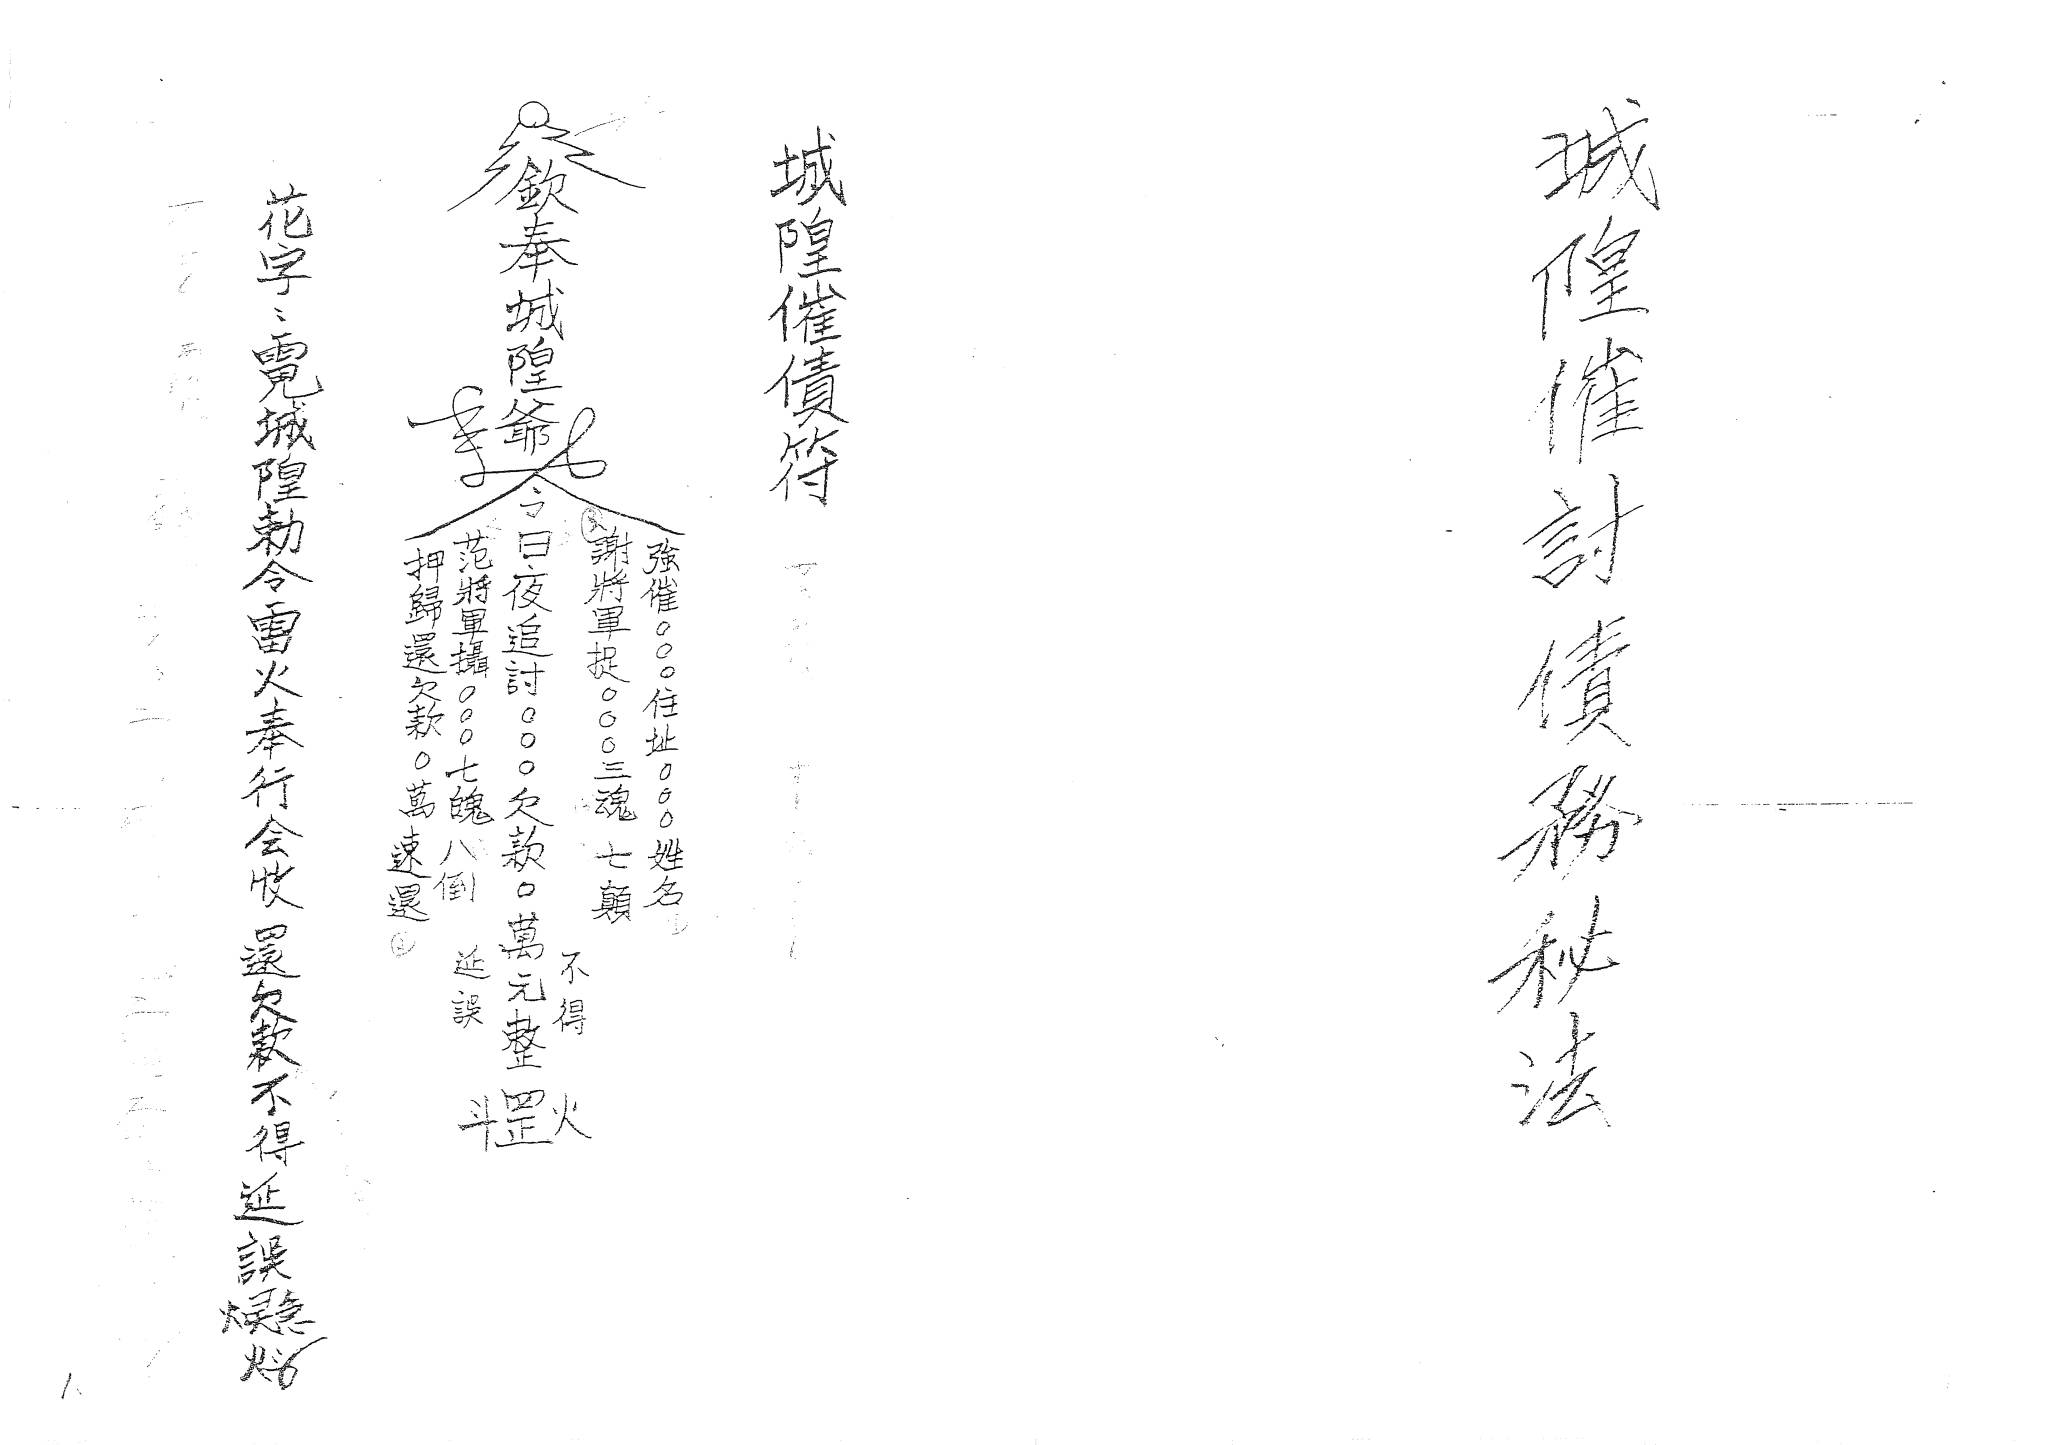 城隍催討債務秘法
城隍催債符
強催○○○住址○○○姓名
謝將軍捉○○○三魂七顛
不得
欽奉城隍爺令日夜追討○○○欠款○萬元整
火罡斗
范將軍攝○○○七魄八倒
延誤
押歸還欠款○萬速還
花字:城隍勅令雷火奉行会收還欠款不得延誤